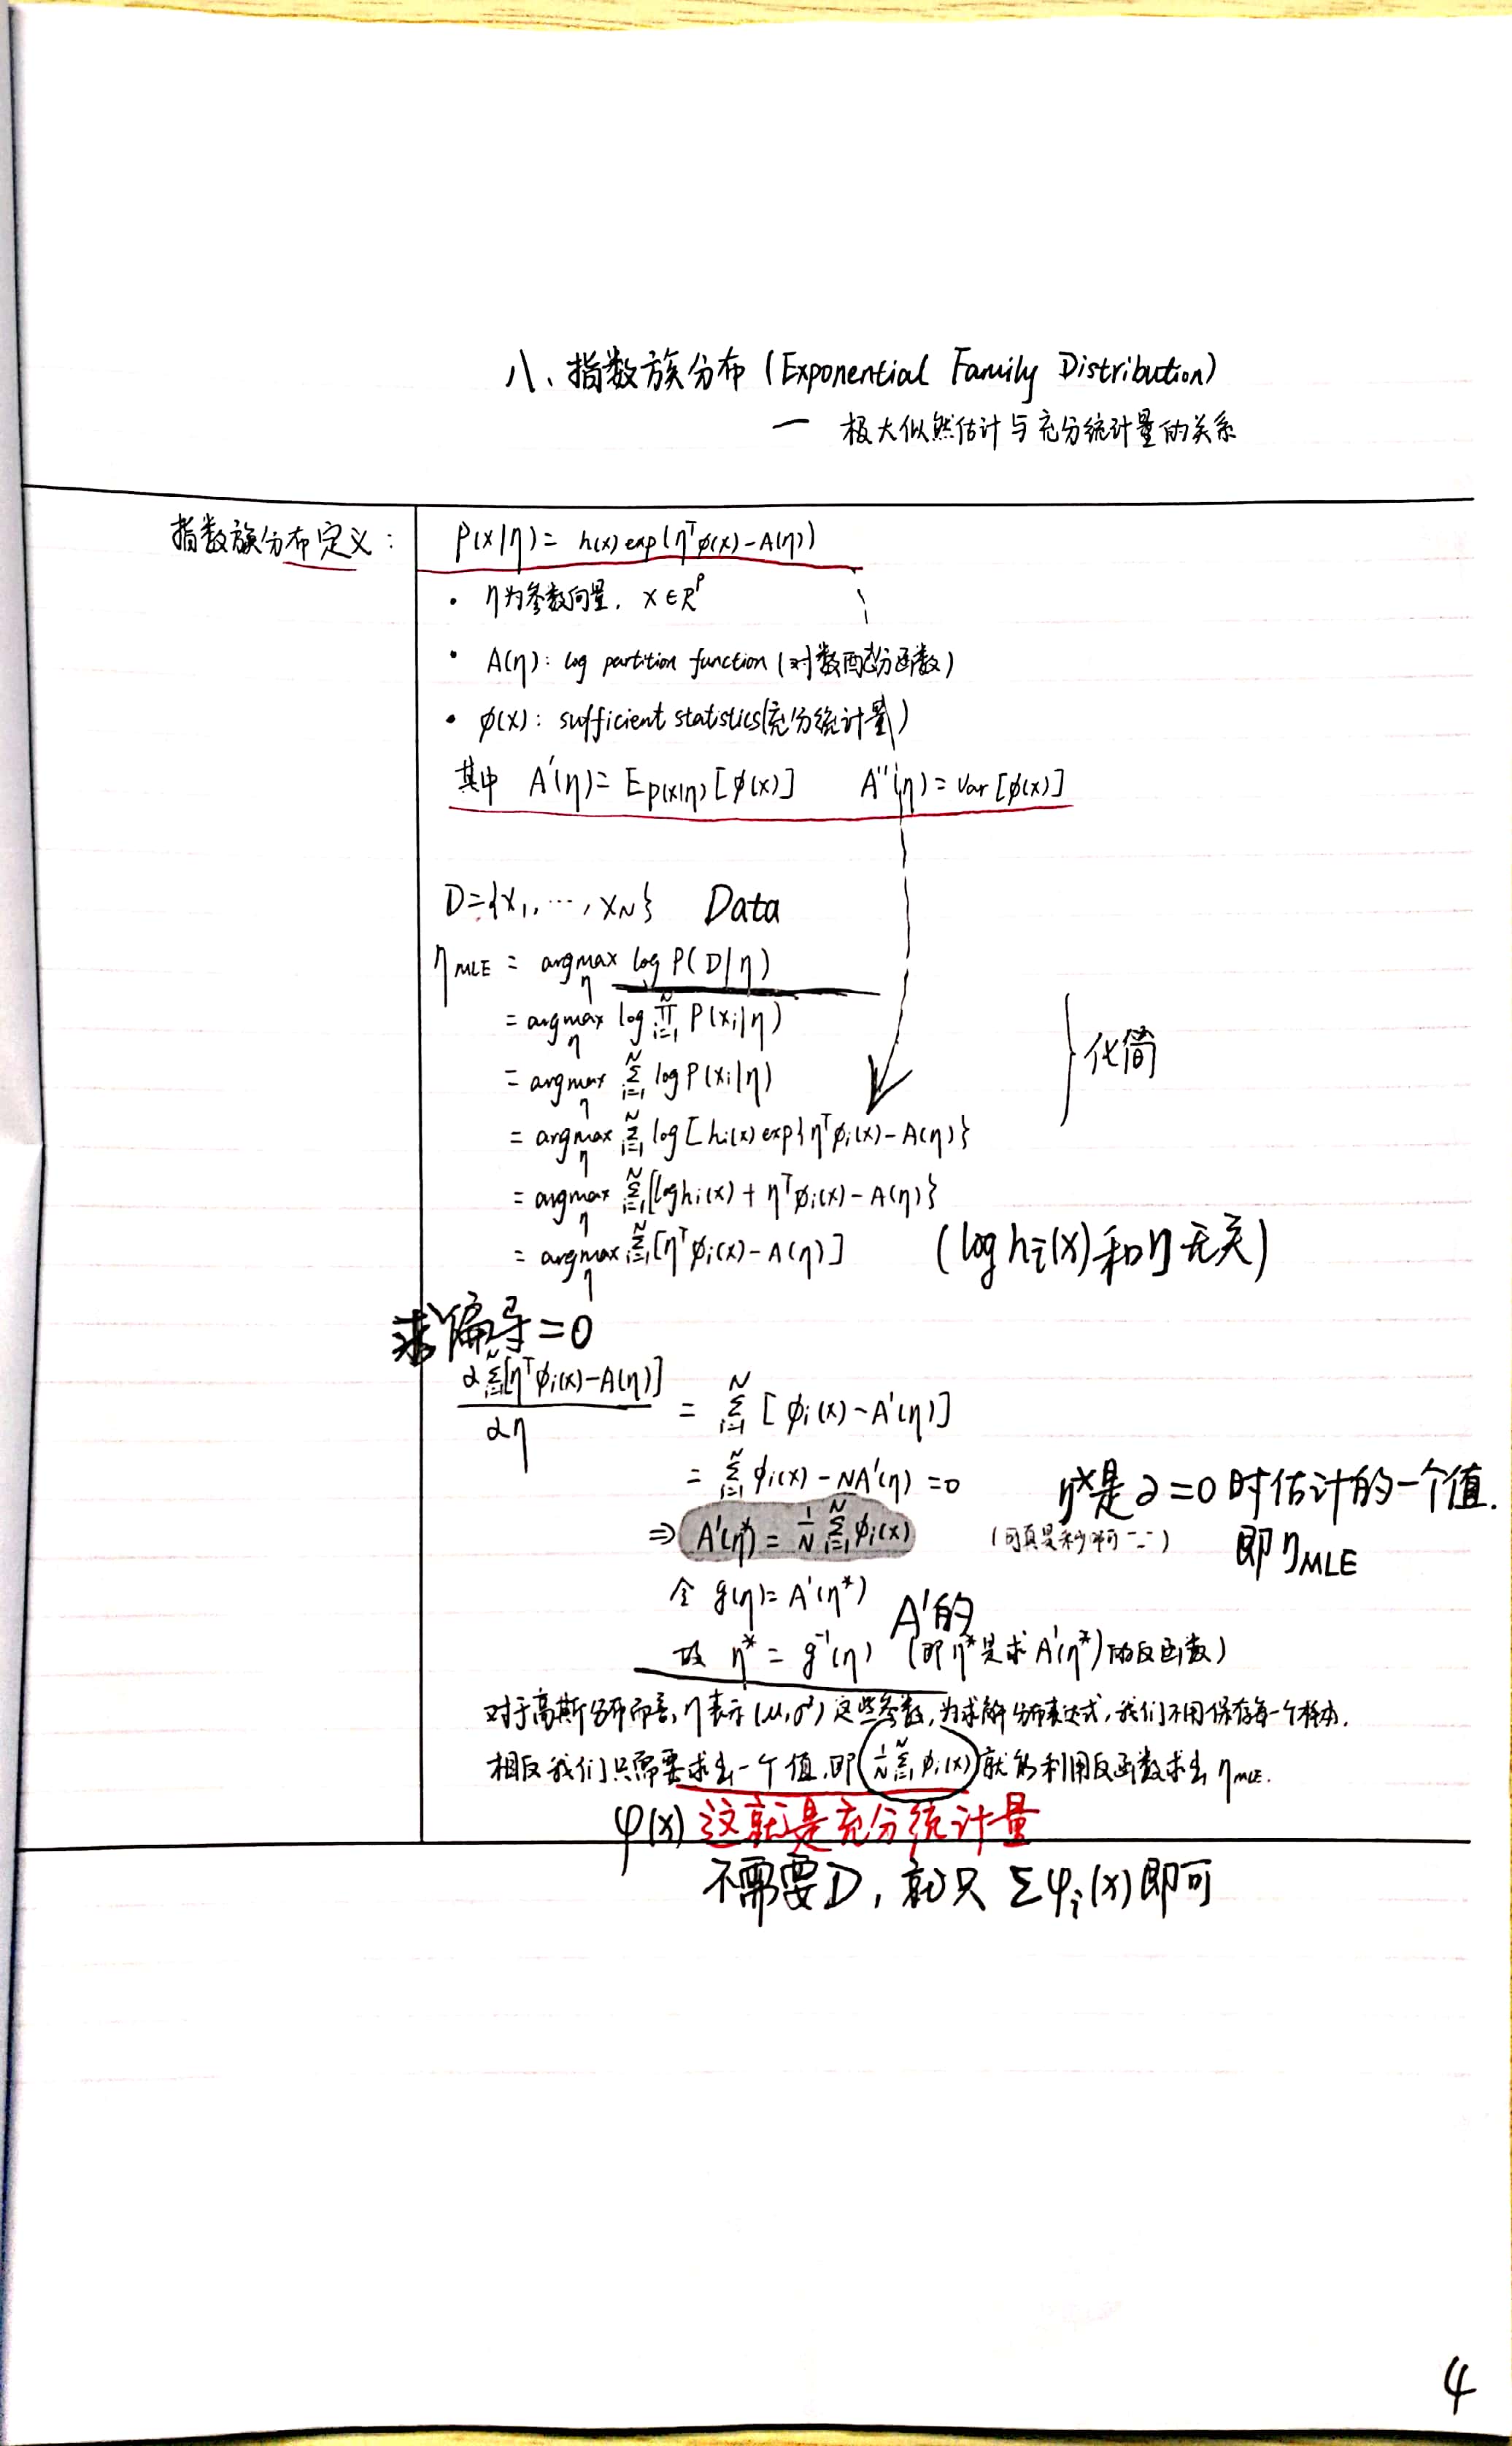 八、指数族分布 (Exponential Family Distribution)
— 极大似然估计与充分统计量的关系
指数族分布定义：
P(x|η) = h(x) exp(η^T φ(x) - A(η))
· η为参数向量, x∈R^p
· A(η): log partition function (对数配分函数)
· φ(x): sufficient statistics(充分统计量)
其中 A'(η) = E_{P(x|η)}[φ(x)] A''(η) = Var[φ(x)]
D={x₁, ⋯, x_N} Data
η_MLE = argmax_η log P(D|η)
= argmax_η log ∏_{i=1}^N P(x_i|η)
= argmax_η ∑_{i=1}^N log P(x_i|η)
} 化简
= argmax_η ∑_{i=1}^N log [h_i(x) exp{η^T φ_i(x) - A(η)}
= argmax_η ∑_{i=1}^N [log h_i(x) + η^T φ_i(x) - A(η)}
= argmax_η ∑_{i=1}^N [η^T φ_i(x) - A(η)] (log h_i(x) 和 η 无关)
求偏导=0
∂∑_{i=1}^N[η^T φ_i(x) - A(η)] / ∂η = ∑_{i=1}^N [φ_i(x) - A'(η)]
= ∑_{i=1}^N φ_i(x) - NA'(η) = 0
η*是∂=0时估计的一个值.
即 η_MLE
⇒ A'(η*) = 1/N ∑_{i=1}^N φ_i(x) (可真是秒啊 -.-)
令 g(η) = A'(η*)
A'的
故 η* = g⁻¹(η) (即η*是求A'(η*)的反函数)
对于高斯分布而言, η表示(μ,σ²)这些参数, 为求解分布表达式, 我们不用保存每一个样本,
相反我们只需要求出一个值, 即 1/N ∑_{i=1}^N φ_i(x) 就能利用反函数求出 η_MLE.
φ(x) 这就是充分统计量
不需要D, 就只 ∑φ_i(x) 即可
4